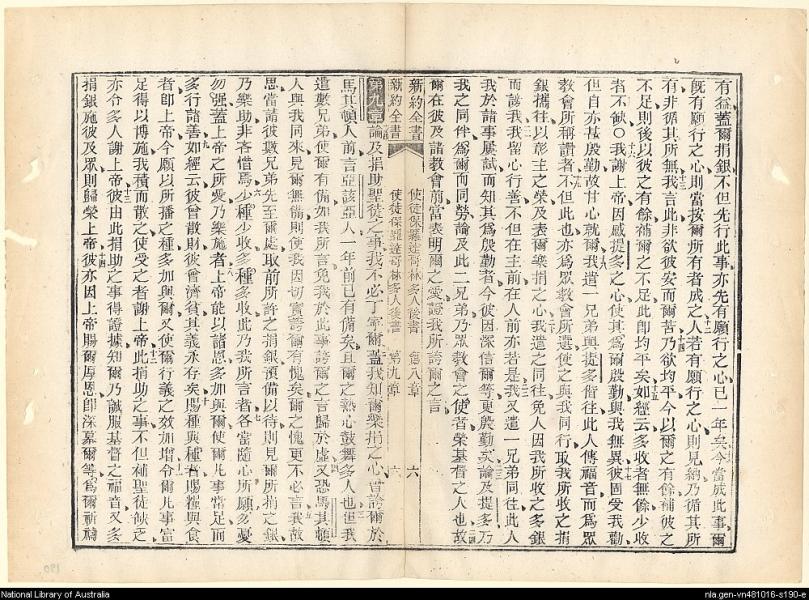 有益蓋爾捐銀不但先行此事亦先有願行之心已一年矣今當成此事爾
旣有願行之心則當按爾所有者成之人若有願行之心則見納乃循其所
有非循其所無我言此非欲彼安而爾苦乃欲均平今以爾之有餘補彼之
不足則後以彼之有餘補爾之不足此即均平矣如經云多收者無餘少收
者不缺〇我謝上帝因感提多之心使其爲爾殷勤與我無異彼固受我勸
但自亦甚殷勤故甘心就爾我遣一兄弟與提多偕往此人傳福音而爲眾
教會所稱讚者不但此也亦爲眾教會所選使之與我同行取我所收之捐
銀攜往以彰主之榮及表爾樂捐之心我遣之同往免人因我所收之多銀
而謗我我留心行善不但在主前在人前亦若是我又遣一兄弟同往此人
我於諸事屢試而知其爲殷勤者今彼因深信爾等更殷勤矣論及提多乃
我之同伴爲爾而同勞論及此二兄弟乃眾教會之使者榮基督之人也故
爾在彼及諸教會前當表明爾之愛證我所誇爾之言
新約全書 使徒保羅達哥林多人後書 第八章 六
新約全書 使徒保羅達哥林多人後書 第九章 六
第九章論及捐助聖徒之事我不必丁寧爾蓋我知爾樂捐之心曾誇爾於
馬其頓人前言亞該亞人一年前已有備矣且爾之熱心鼓舞多人也但我
遣數兄弟使爾有備如我所言免我於此事誇爾之言歸於虛又恐馬其頓
人與我同來見爾無備則使我因切實誇爾有愧矣爾之愧更不必言我故
思當請彼數兄弟先至爾處取前所許之捐銀預備以待則見爾所捐之銀
乃樂助非吝惜焉少種少收多種多收此乃我所言者各當隨心所願勿憂
勿强蓋上帝之所愛乃樂施者上帝能以諸恩多加與爾使爾凡事常足而
多行諸善如經云彼曾散財彼曾濟貧其義永存矣賜種與種者賜糧與食
者即上帝今願以所播之種多加與爾又使爾行義之效加增令爾凡事富
足得以博施我積而散之使受之者謝上帝此捐助之事不但補聖徒缺乏
亦令多人謝上帝彼由此捐助之事得證據知爾乃誠服基督之福音又多
捐銀施彼及眾則歸榮上帝彼亦因上帝賜爾厚恩即深慕爾等爲爾祈禱
National Library of Australia
nla.gen-vn481016-s190-e